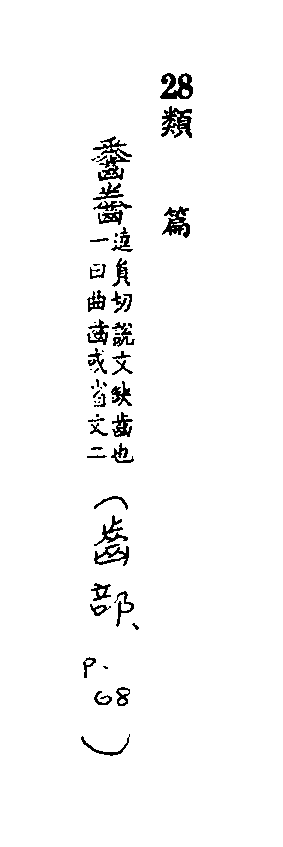 28類篇
齤
逵員切說文缺齒也
一曰曲齒或省文二
(齒部、
p.
68)